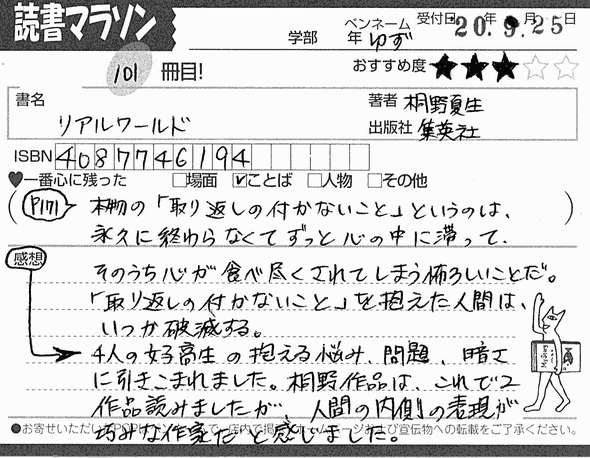 読書マラソン
学部 年
ペンネーム ゆず
受付日 20.年9.月25日
101 冊目!
おすすめ度 ★★★☆☆
書名
リアルワールド
著者 桐野夏生
出版社 集英社
ISBN 4087746194
♥一番心に残った □場面 ☑ことば □人物 □その他
(P171) 本物の「取り返しの付かないこと」というのは、
永久に終わらなくてずっと心の中に滞って、
そのうち心が食べ尽くされてしまう怖ろしいことだ。
「取り返しの付かないこと」を抱えた人間は、
いつか破滅する。
感想
4人の女子高生の抱える悩み、問題、暗さ
に引きこまれました。桐野作品は、これで2
作品読みましたが、人間の内側の表現が
巧みな作家だと感じました。